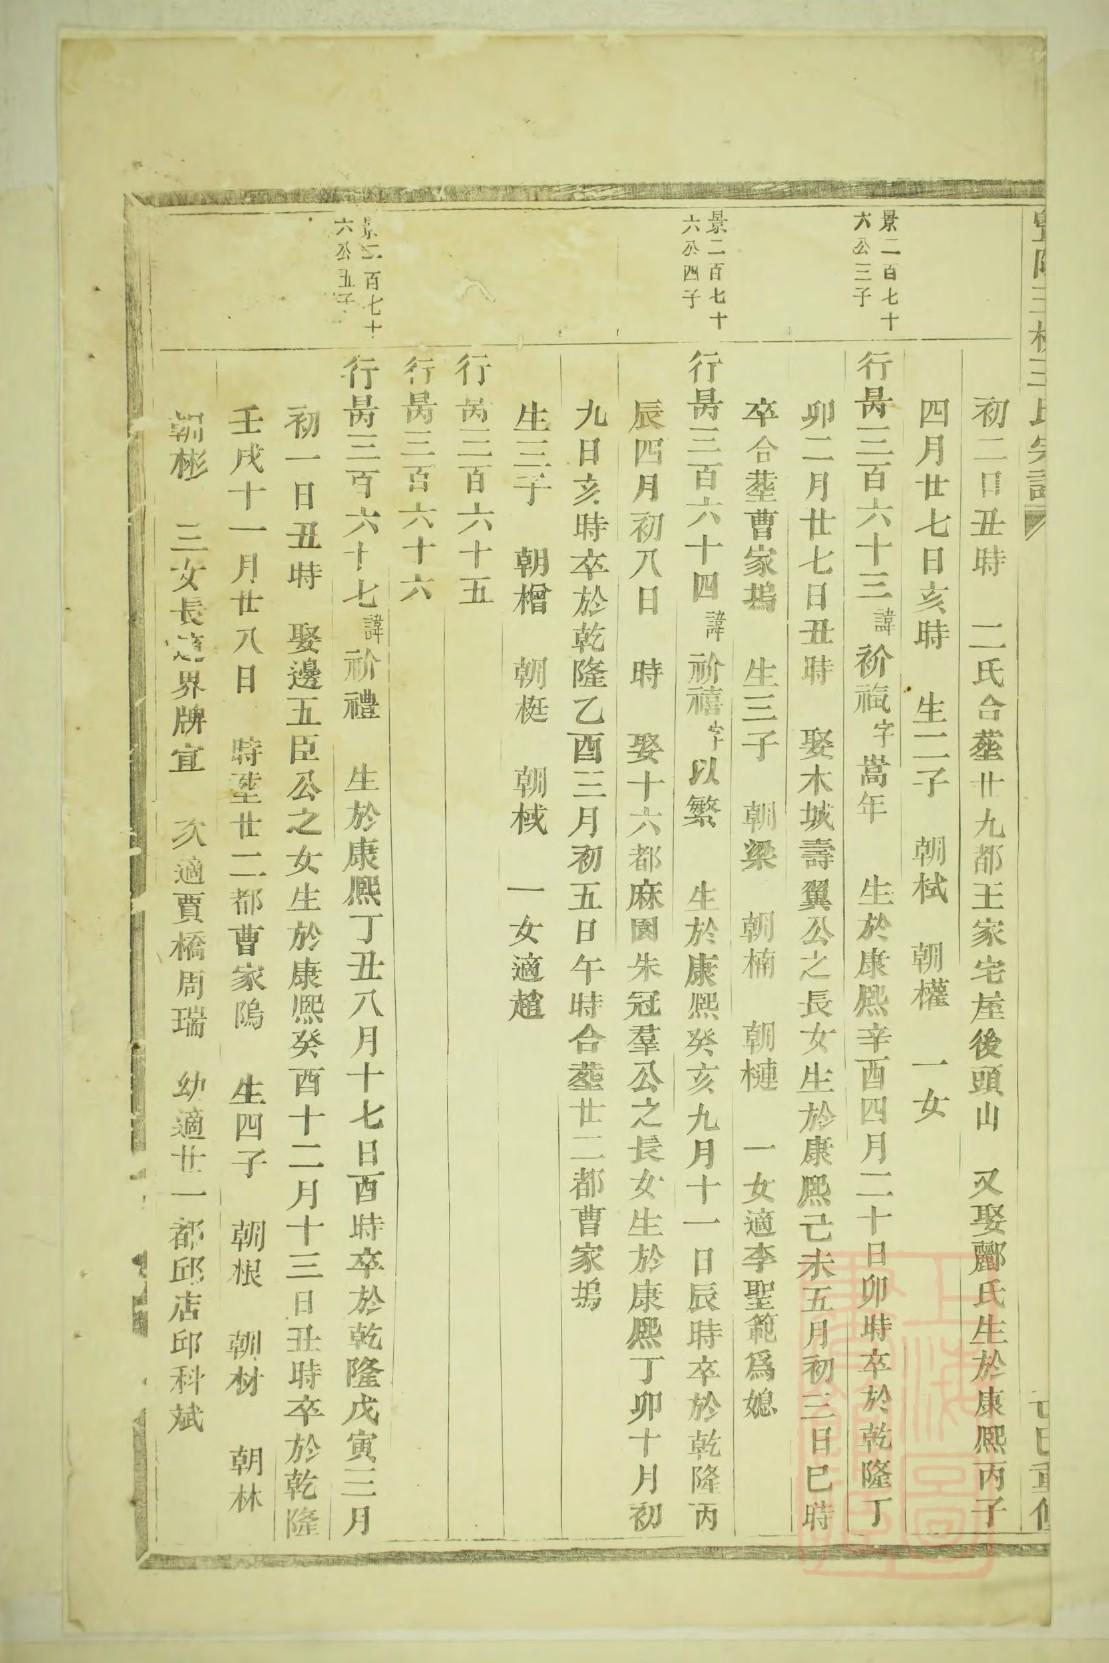 初二日丑時　二氏合塟廿九都王家宅屋後頭山　又娶酈氏生於康熙丙子
四月廿七日亥時　生二子　朝栻　朝權　一女
景二百七十
六公三子
行昺三百六十三諱祄祱字嵩年　生於康熙辛酉四月二十日卯時卒於乾隆丁
卯二月廿七日丑時　娶木城壽翼公之長女生於康熙己未五月初三日巳時
卒合塟曹家塢　生三子　朝梁　朝楠　朝槤　一女適李聖範爲媳
景二百七十
六公四子
行昺三百六十四諱祄禧字以繁　生於康熙癸亥九月十一日辰時卒於乾隆丙
辰四月初八日　時　娶十六都麻園朱冠羣公之長女生於康熙丁卯十月初
九日亥時卒於乾隆乙酉三月初五日午時合塟廿二都曹家塢
生三子　朝檜　朝梃　朝棫　一女適趙
行昺三百六十五
行昺三百六十六
景二百七十
六公五子
行昺三百六十七諱祄禮　生於康熙丁丑八月十七日酉時卒於乾隆戊寅三月
初一日丑時　娶邊五臣公之女生於康熙癸酉十二月十三日丑時卒於乾隆
壬戌十一月廿八日　時塟廿二都曹家隖　生四子　朝根　朝材　朝林
朝彬　三女長適界牌宣　次適賈橋周瑞　幼適廿一都邱店邱科斌